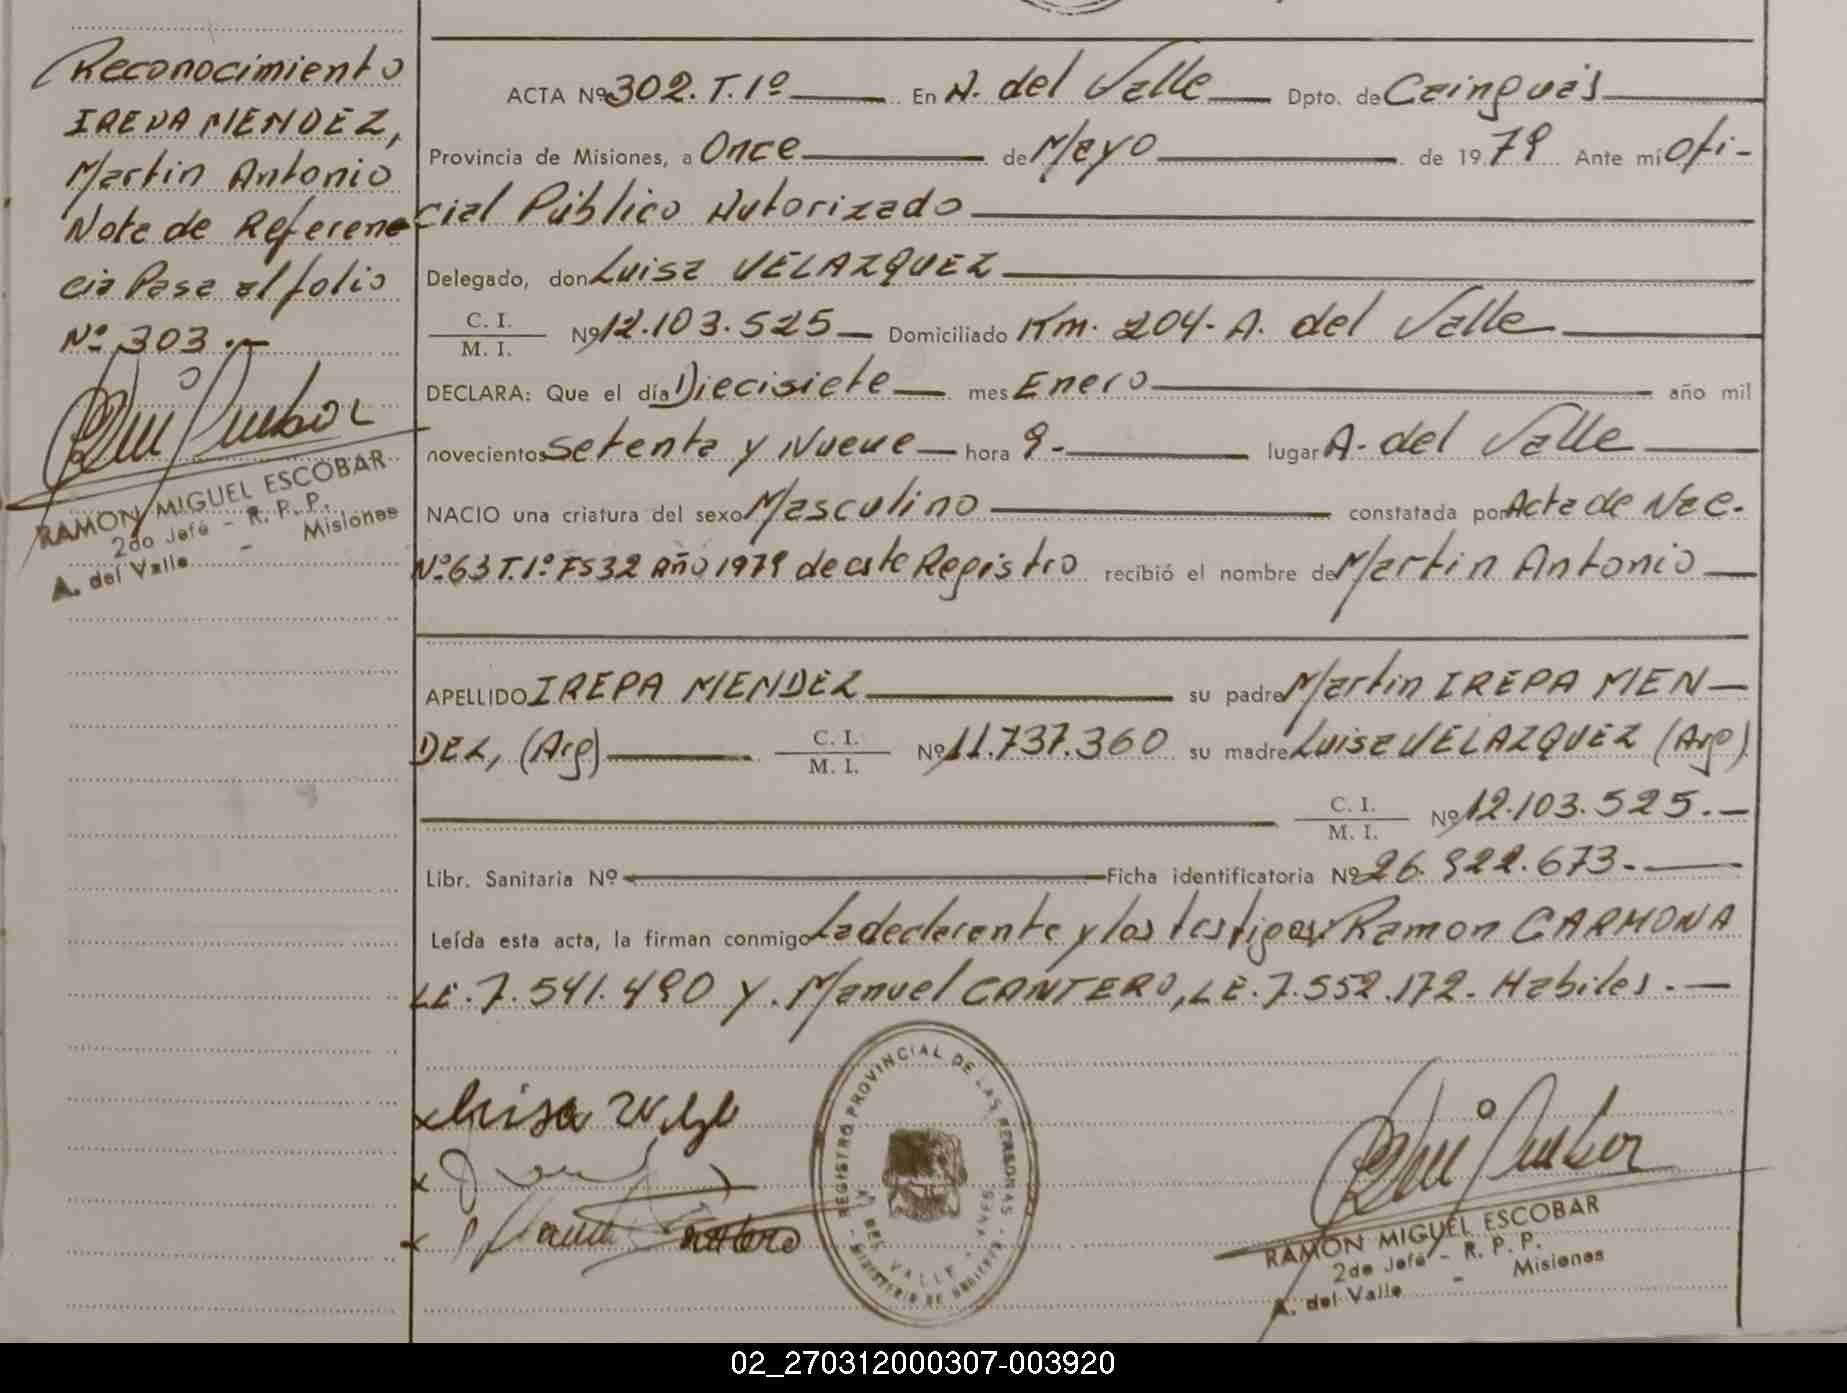 Reconocimiento
IREPA MENDEZ,
Martin Antonio
Nota de Referen
cia Pasa al folio
Nº 303.-
RAMON MIGUEL ESCOBAR
2do Jefe - R. P. P.
A. del Valle - Misiones
ACTA Nº 302. T. 1º En A. del Valle Dpto. de Cainguás
Provincia de Misiones, a Once de Mayo de 1979 Ante mí Ofi-
cial Público Autorizado
Delegado, don Luisa VELAZQUEZ
C. I.
M. I. Nº 12.103.525 Domiciliado Km. 204- A. del Valle
DECLARA: Que el día Diecisiete mes Enero año mil
novecientos Setenta y Nueve hora 9- lugar A- del Valle
NACIO una criatura del sexo Masculino constatada por Acta de Nac.
Nº 63 T. 1º FS 32 Año 1979 de este Registro recibió el nombre de Martin Antonio
APELLIDO IREPA MENDEZ su padre Martin IREPA MEN-
DEZ, (Arg) C. I.
M. I. Nº 11.737.360 su madre Luisa VELAZQUEZ (Arg)
C. I.
M. I. Nº 12.103.525.-
Libr. Sanitaria Nº Ficha identificatoria Nº 26.922.673.-
Leída esta acta, la firman conmigo La declarante y los testigos Ramon CARMONA
LE. 7.541.490 y Manuel CANTERO, LE. 7.552.172. Habiles.-
Luisa
REGISTRO PROVINCIAL DE LAS PERSONAS
A. DEL VALLE - MNES
RAMON MIGUEL ESCOBAR
2do Jefe - R. P. P.
A. del Valle - Misiones
02_270312000307-003920